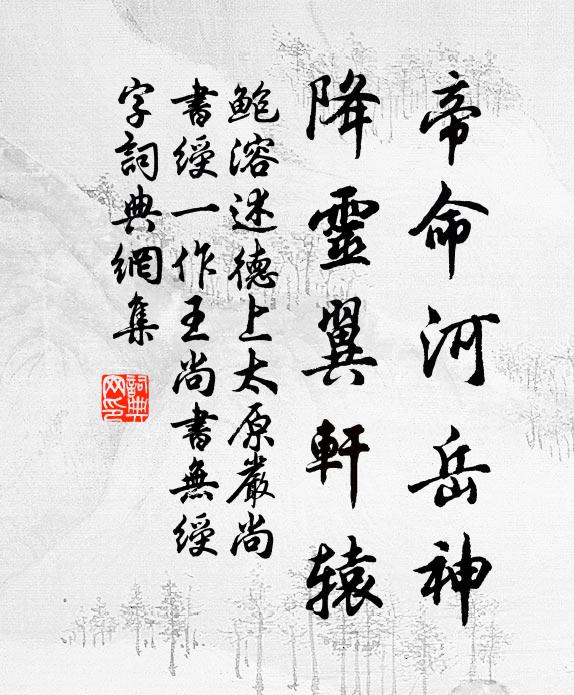 帝命河岳神
降靈翼軒辕
鲍溶述德上太原嚴尚
書綬一作王尚書無綬
字詞典網集
詞典
网印